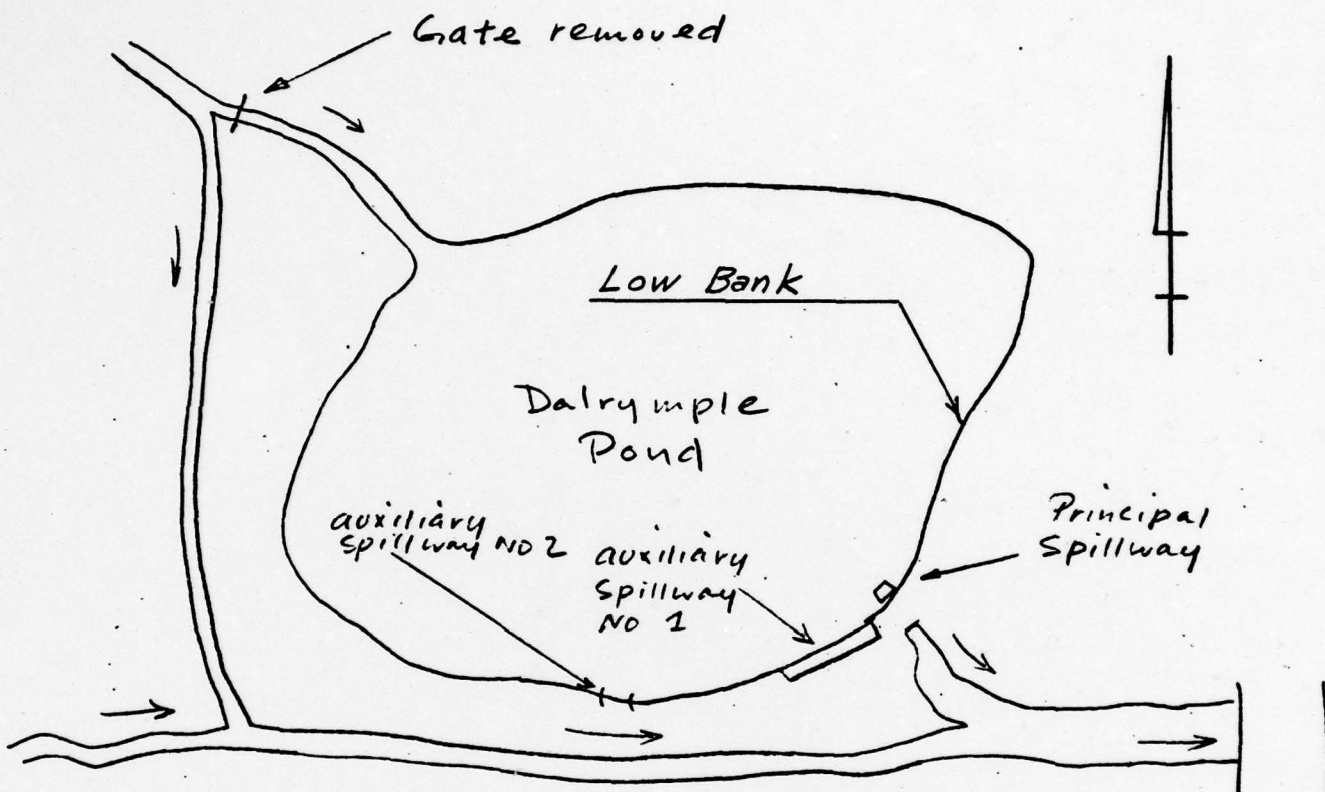 Gate removed
Low Bank
Dalrymple
Pond
auxiliary
spillway NO 2
auxiliary
Spillway
NO 1
Principal
Spillway